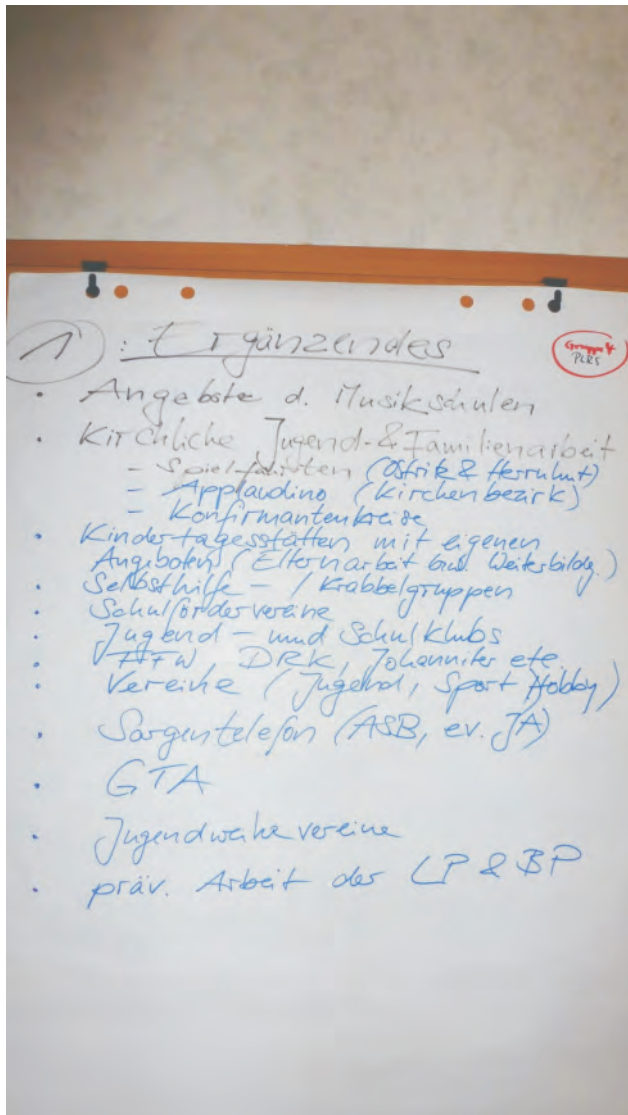 1: Ergänzendes
Gruppe 4
PLR5
· Angebote d. Musikschulen
· Kirchliche Jugend- & Familienarbeit
- Spielfahrten (Ostritz & Herrnhut)
- Applaudino (Kirchenbezirk)
- Konfirmantenkreise
· Kindertagesstätten mit eigenen
Angeboten (Elternarbeit bzw. Weiterbildg.)
· Selbsthilfe- / Krabbelgruppen
· Schulfördervereine
· Jugend- und Schulklubs
· FFW, DRK, Johanniter etc.
· Vereine (Jugend, Sport Hobby)
· Sorgentelefon (ASB, ev. JA)
· GTA
· Jugendweihevereine
· präv. Arbeit der LP & BP